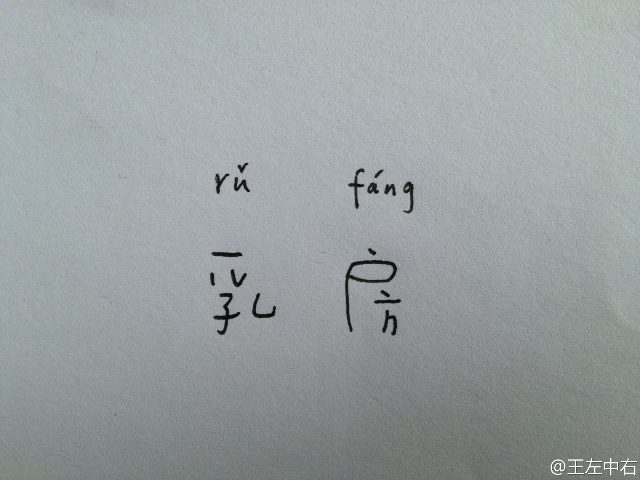 rǔ fáng
乳 房
@王左中右